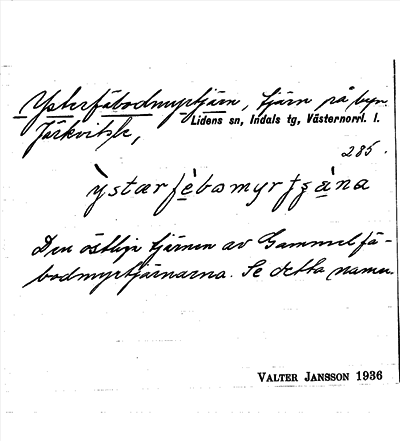 Ysterfäbodmyrtjärn, tjärn på byn
Järkvitsle, Lidens sn, Indals tg, Västernorrl. l.
285.
Den östliga tjärnen av Gammelfä-
bodmyrtjärnarna. Se detta namn.
VALTER JANSSON 1936